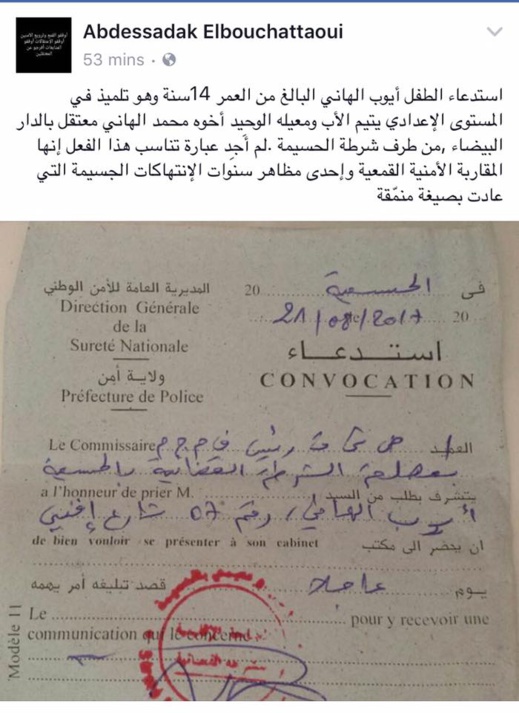 Abdessadak Elbouchattaoui
53 mins ·
استدعاء الطفل أيوب الهاني البالغ من العمر 14سنة وهو تلميذ في
المستوى الإعدادي يتيم الأب ومعيله الوحيد أخوه محمد الهاني معتقل بالدار
البيضاء ,من طرف شرطة الحسيمة .لم أجد عبارة تناسب هذا الفعل إنها
المقاربة الأمنية القمعية وإحدى مظاهر سنوات الإنتهاكات الجسيمة التي
عادت بصيغة منمّقة
المديرية العامة للأمن الوطني
Direction Générale
de la
Sureté Nationale
ولاية أمن
Préfecture de Police
فى الحسيمة 20
21/08/2017 20
استدعاء
CONVOCATION
Le Commissaire العميد
بمصلحة الشرطة القضائية بالحسيمة
a l'honneur de prier M. يتشرف بطلب من السيد
أيوب الهاني، رقم 07 شارع إفني
de bien vouloir se présenter à son cabinet ان يحضر الى مكتب
يوم عاجلا قصد تبليغه أمر يهمه
Le pour y recevoir une
communication qui le concerne
Modèle 11